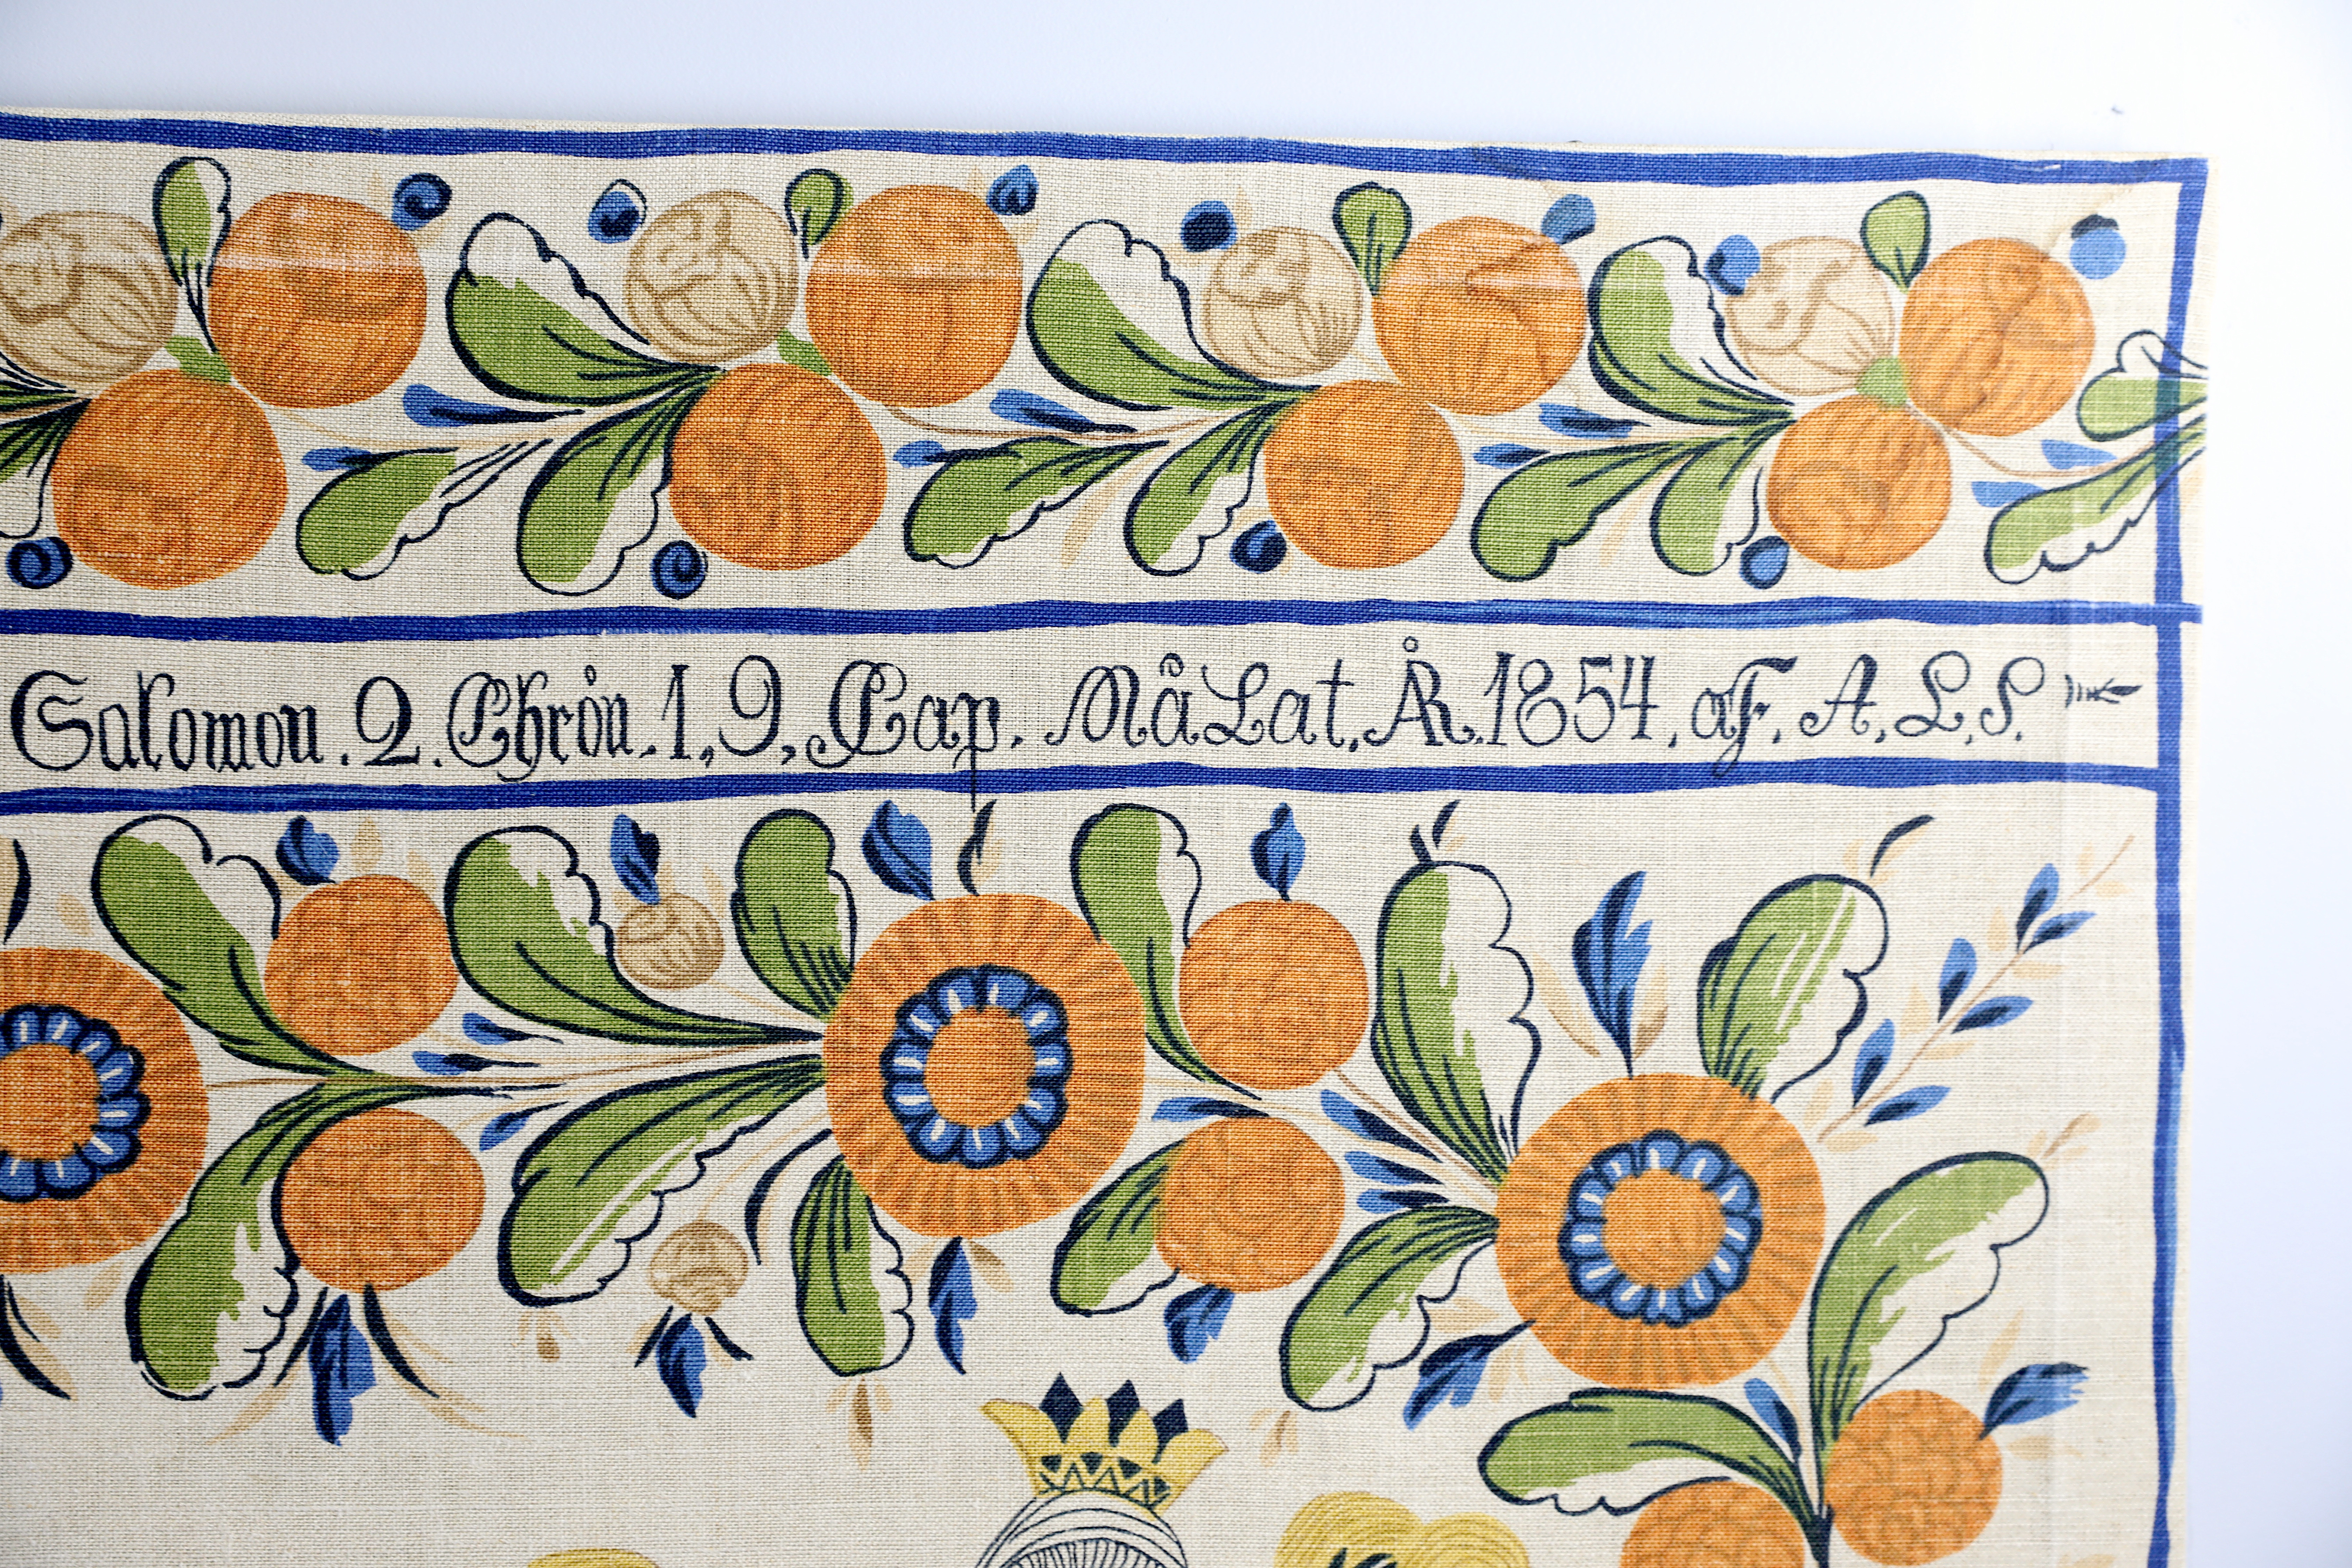 Salomon. 2. Chrön. 1, 9, Cap. MåLat, ÅR. 1854, aF. A, L, S.